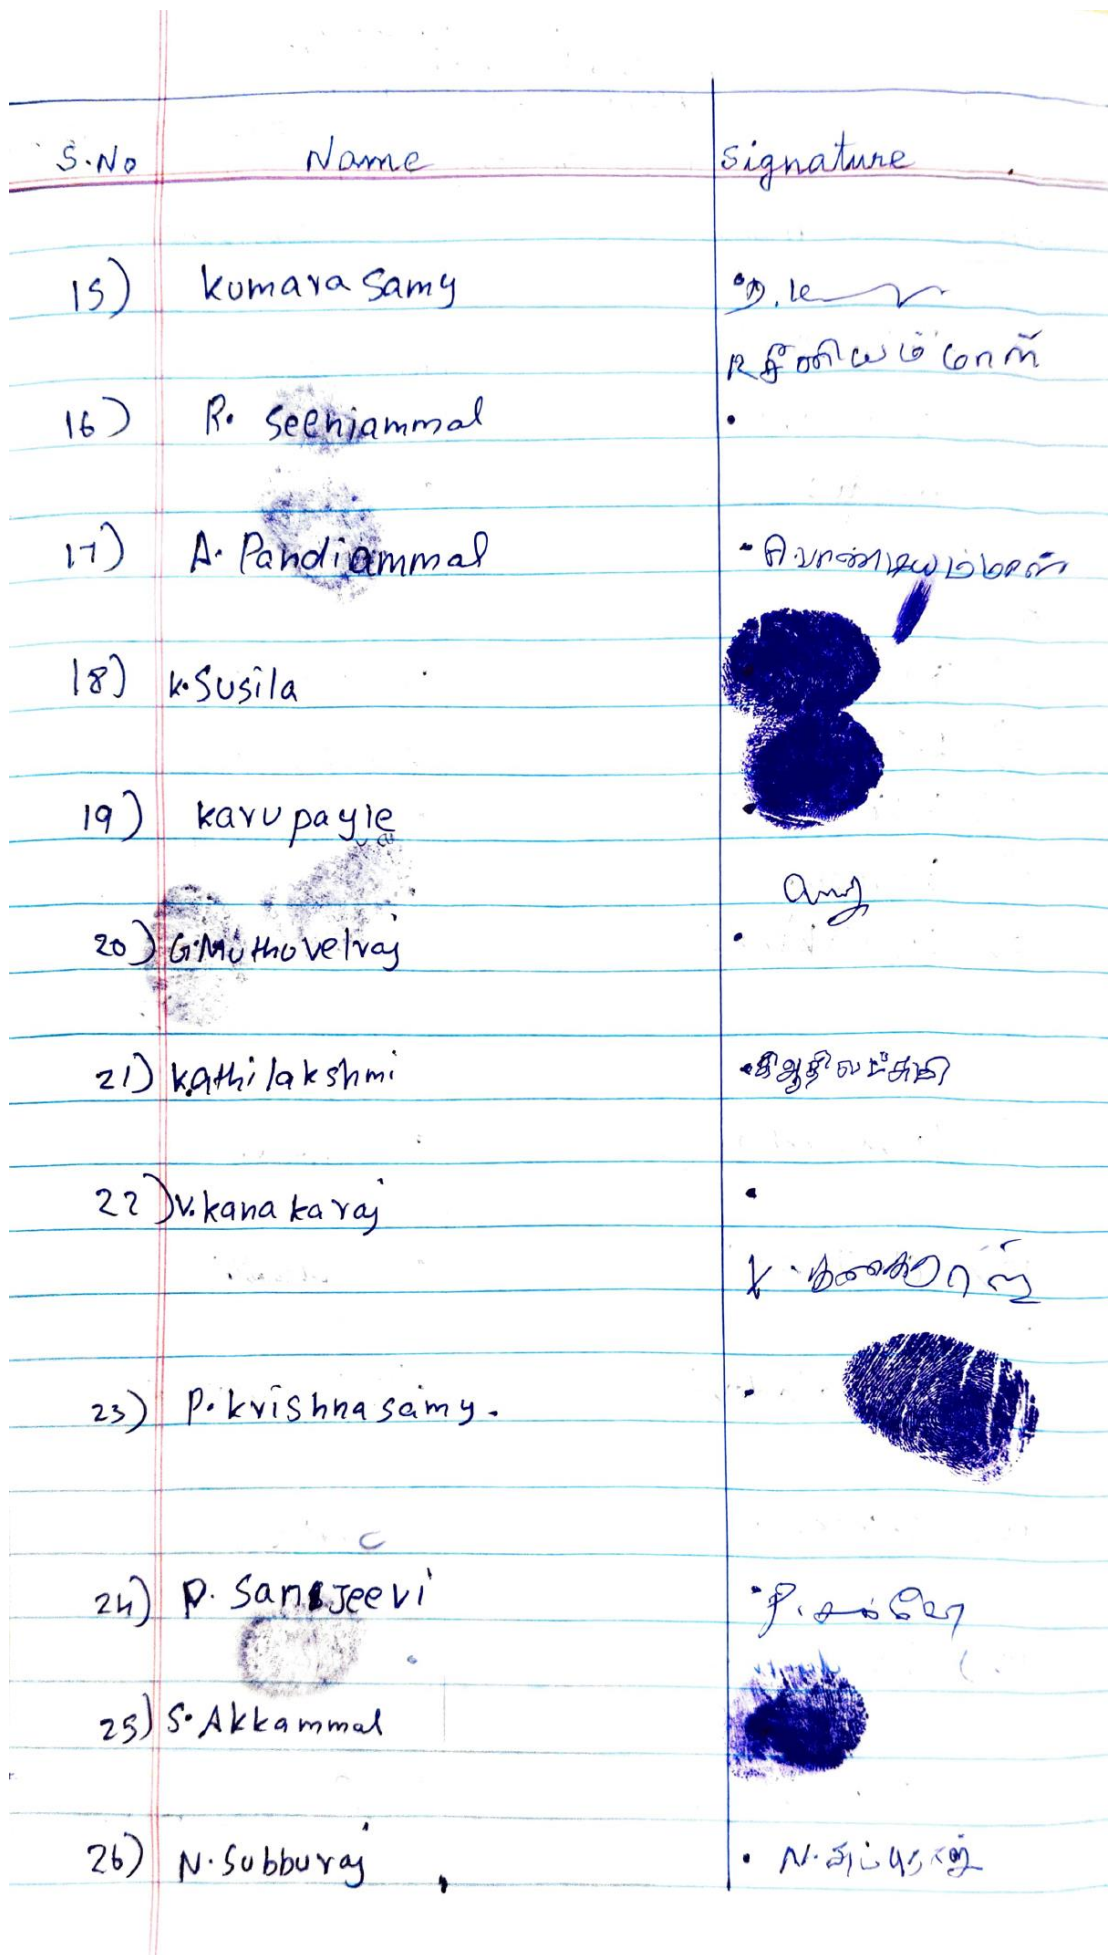 S.No Name Signature
15) Kumara Samy
R சீனியம்மாள்
16) R. Seeniammal
17) A. Pandiammal பாண்டியம்மாள்
18) K. Susila
19) Karupayle
20) G. Muthuvelraj
21) K.athilakshmi ஆதிலட்சுமி
22) V. Kanakaraj
V. கனகராஜ்
23) P. Krishnasamy.
24) P. Sanjeevi
25) S. Akkammal
26) N. Subburaj N. சுப்புராஜ்